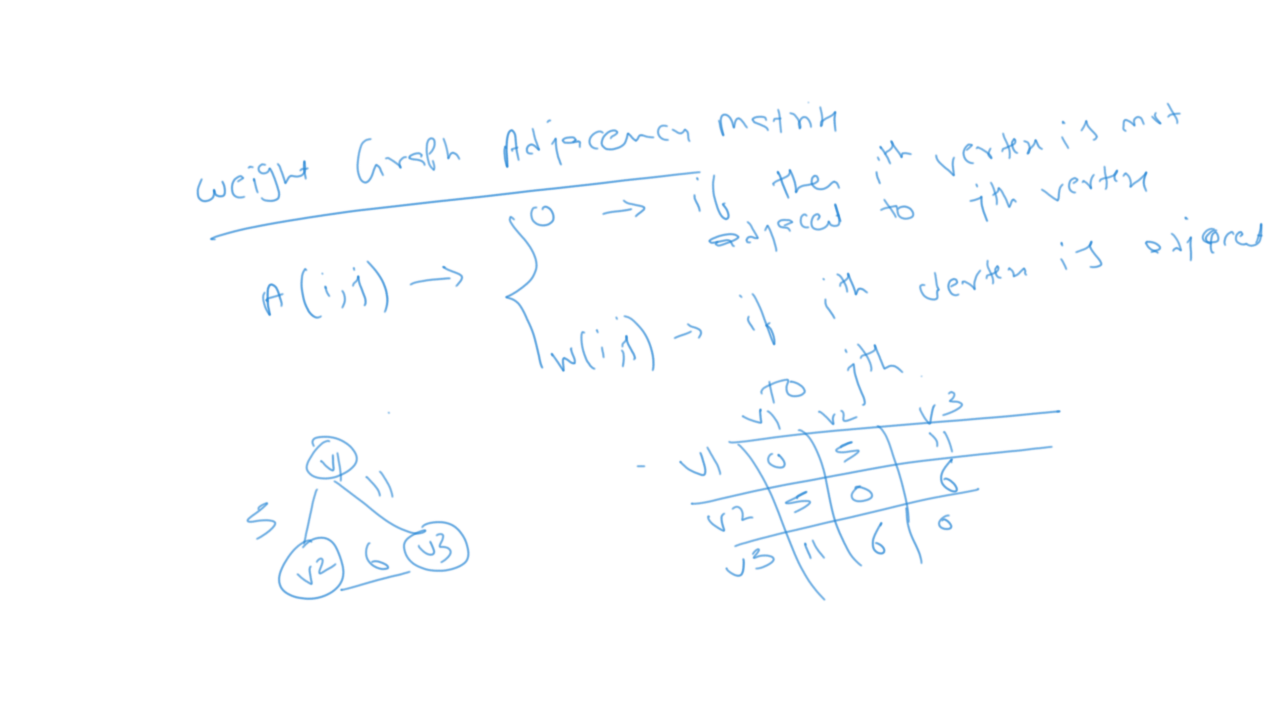 weight Graph Adjacency matrix
A(i,j) → 0 → if then ith vertex is not
adjaced to jth vertex
w(i,j) → if ith vertex is adjaced
to jth
v1 v2 v3
v1 0 5 11
v2 5 0 6
v3 11 6 0
v1
5 11
v2 6 v3